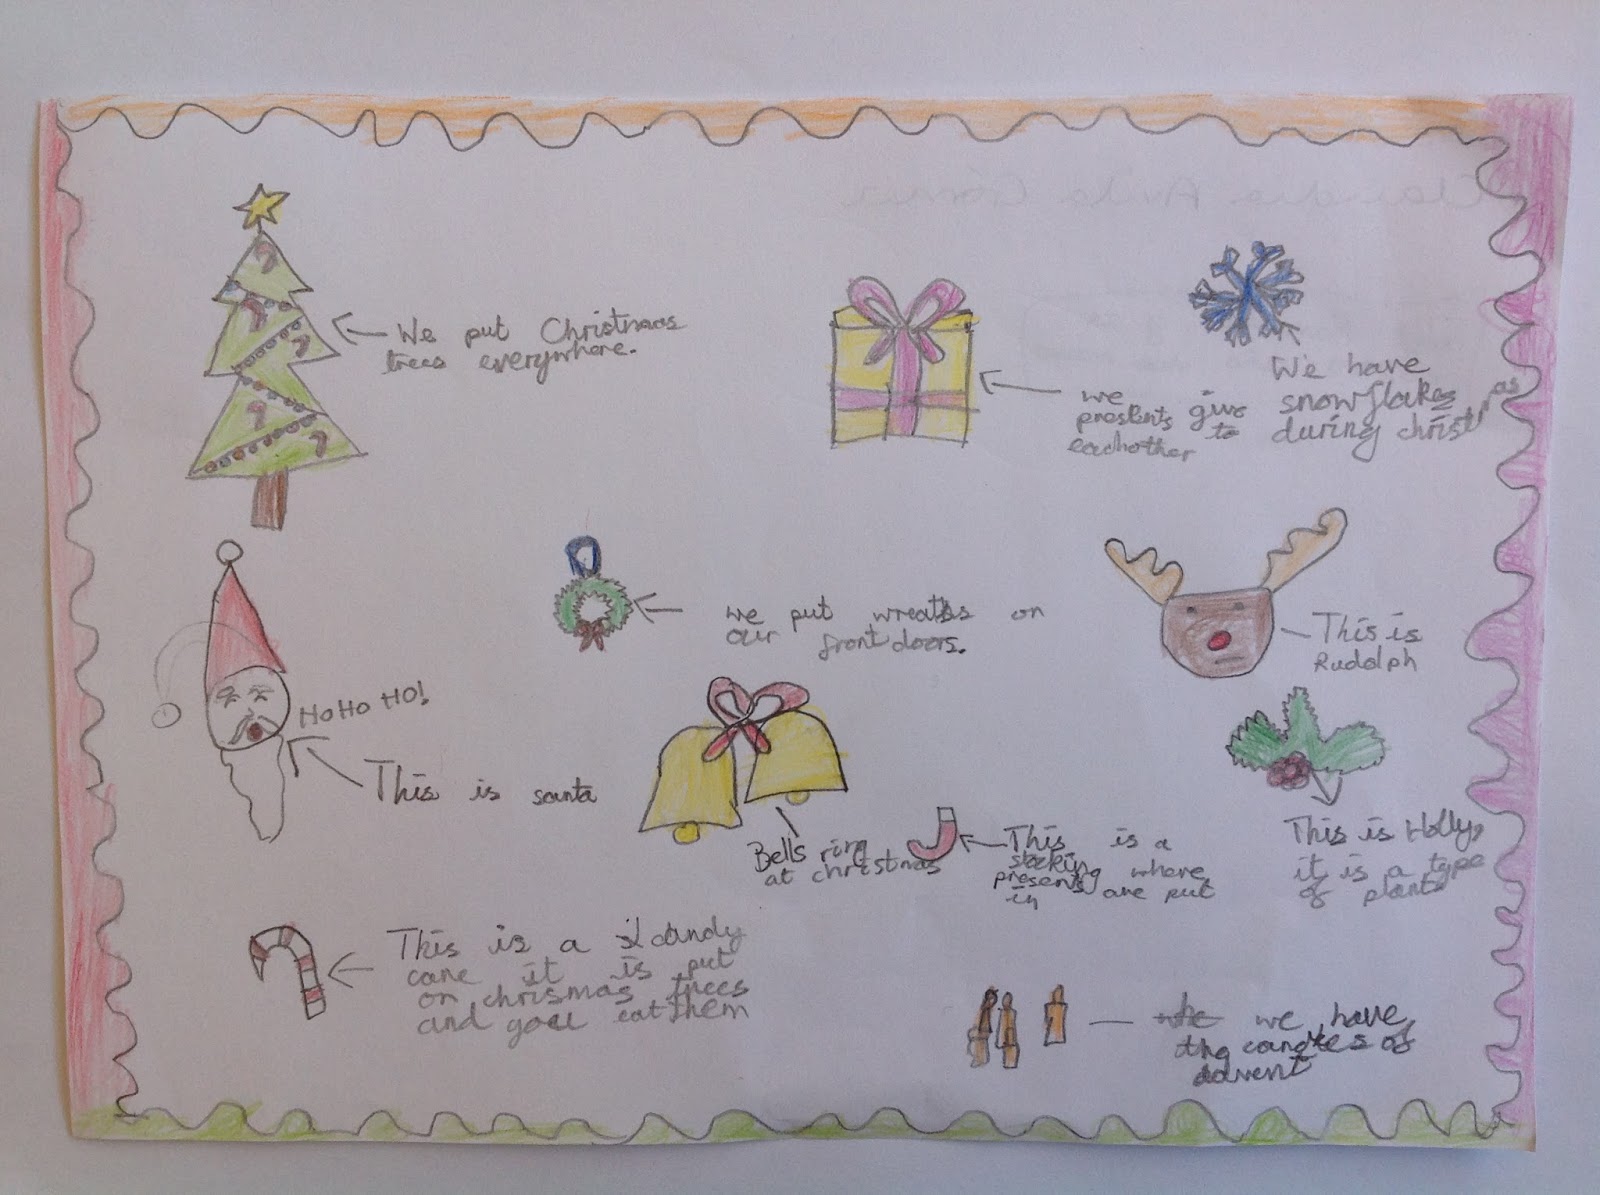 We put Christmas
trees everywhere.
we
presents give to
eachother
We have
snowflakes
during christmas
we put wreaths on
our front doors.
This is
Rudolph
HoHo HO!
This is santa
Bells ring
at christmas
This is a
stocking where
presents are put
in
This is Holly,
it is a type
of plant
This is a candy
cane it is put
on chrismas trees
and you eat them
the we have
the candles of
advent